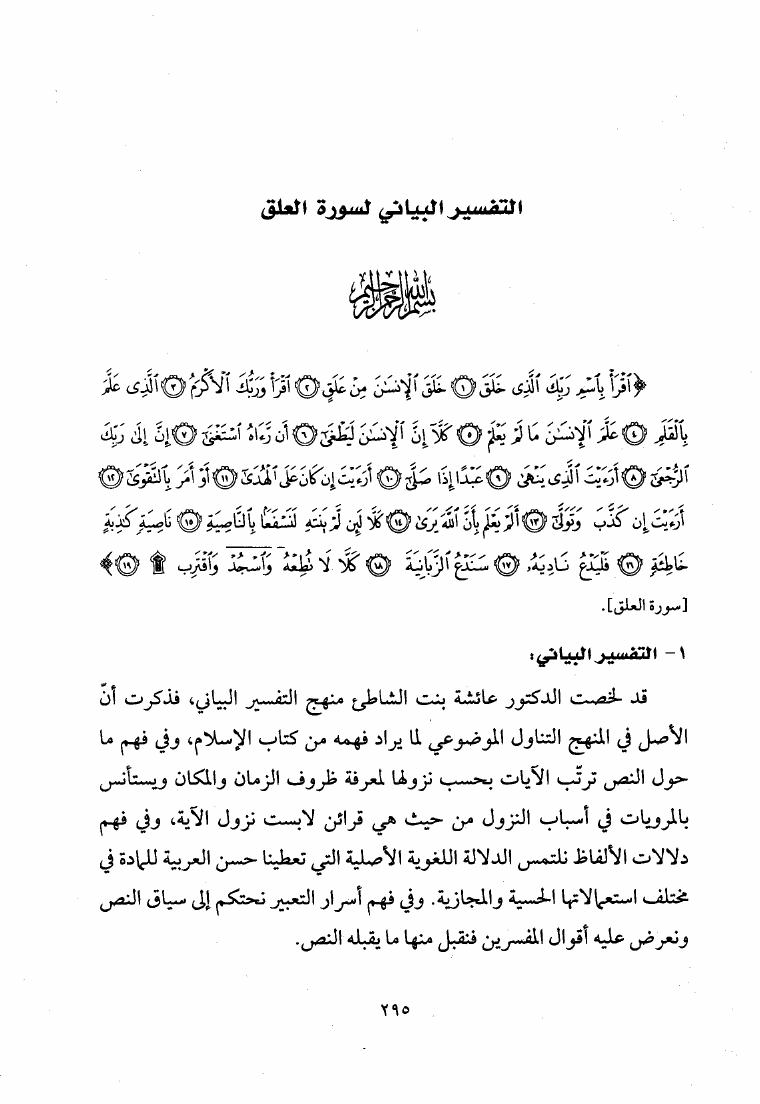 التفسير البياني لسورة العلق
بسم الله الرحمن الرحيم
﴿ٱقْرَأْ بِٱسْمِ رَبِّكَ ٱلَّذِى خَلَقَ ۝١ خَلَقَ ٱلْإِنسَـٰنَ مِنْ عَلَقٍ ۝٢ ٱقْرَأْ وَرَبُّكَ ٱلْأَكْرَمُ ۝٣ ٱلَّذِى عَلَّمَ
بِٱلْقَلَمِ ۝٤ عَلَّمَ ٱلْإِنسَـٰنَ مَا لَمْ يَعْلَمْ ۝٥ كَلَّآ إِنَّ ٱلْإِنسَـٰنَ لَيَطْغَىٰٓ ۝٦ أَن رَّءَاهُ ٱسْتَغْنَىٰٓ ۝٧ إِنَّ إِلَىٰ رَبِّكَ
ٱلرُّجْعَىٰٓ ۝٨ أَرَءَيْتَ ٱلَّذِى يَنْهَىٰ ۝٩ عَبْدًا إِذَا صَلَّىٰٓ ۝١٠ أَرَءَيْتَ إِن كَانَ عَلَى ٱلْهُدَىٰٓ ۝١١ أَوْ أَمَرَ بِٱلتَّقْوَىٰٓ ۝١٢
أَرَءَيْتَ إِن كَذَّبَ وَتَوَلَّىٰٓ ۝١٣ أَلَمْ يَعْلَم بِأَنَّ ٱللَّهَ يَرَىٰ ۝١٤ كَلَّا لَئِن لَّمْ يَنتَهِ لَنَسْفَعًۢا بِٱلنَّاصِيَةِ ۝١٥ نَاصِيَةٍ كَـٰذِبَةٍ
خَاطِئَةٍ ۝١٦ فَلْيَدْعُ نَادِيَهُۥ ۝١٧ سَنَدْعُ ٱلزَّبَانِيَةَ ۝١٨ كَلَّا لَا تُطِعْهُ وَٱسْجُدْ وَٱقْتَرِب ۩ ۝١٩﴾
[سورة العلق].
١- التفسير البياني:
قد لخصت الدكتور عائشة بنت الشاطئ منهج التفسير البياني، فذكرت أنّ
الأصل في المنهج التناول الموضوعي لما يراد فهمه من كتاب الإسلام، وفي فهم ما
حول النص ترتّب الآيات بحسب نزولها لمعرفة ظروف الزمان والمكان ويستأنس
بالمرويات في أسباب النزول من حيث هي قرائن لابست نزول الآية، وفي فهم
دلالات الألفاظ نلتمس الدلالة اللغوية الأصلية التي تعطينا حسن العربية للمادة في
مختلف استعمالاتها الحسية والمجازية. وفي فهم أسرار التعبير نحتكم إلى سياق النص
ونعرض عليه أقوال المفسرين فنقبل منها ما يقبله النص.
٢٩٥